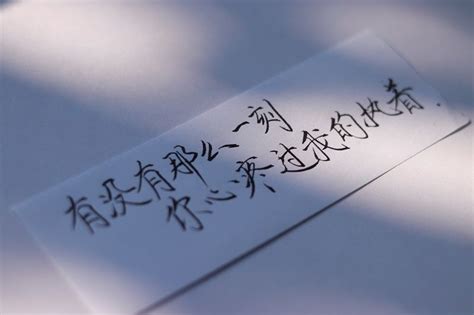 有没有那么一刻
你心疼过我的执着.